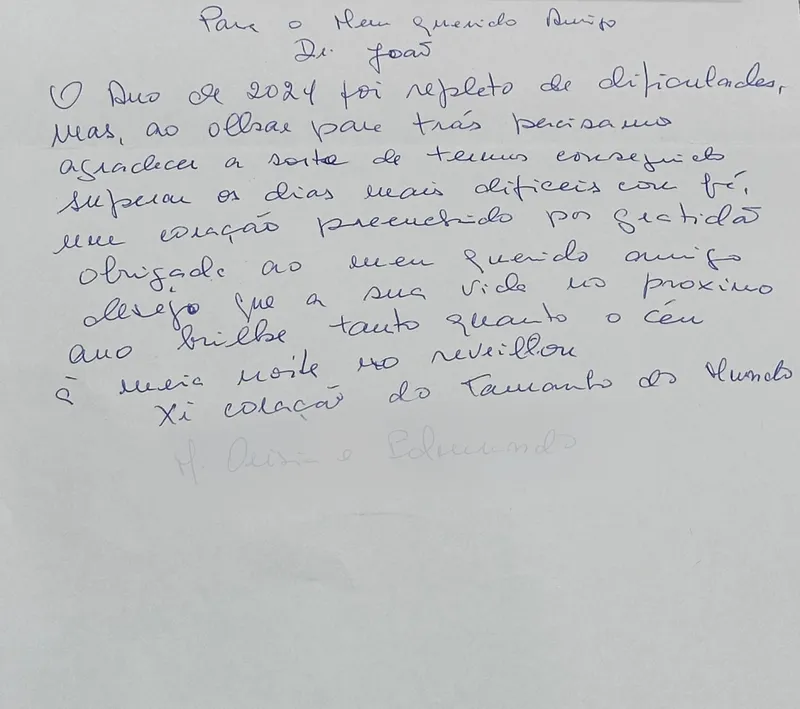 Para o Meu querido Amigo
Dr. João
O Ano de 2024 foi repleto de dificuldades,
mas, ao olhar para trás precisamo
agradecer a sorte de termos conseguido
superar os dias mais dificeis com fé,
um coração preenchido por gratidão
obrigada ao meu querido amigo
desejo que a sua vida no proximo
ano brilhe tanto quanto o céu
à meia noite no reveillon
Xi coração do Tamanho do Mundo
M. e Edmundo